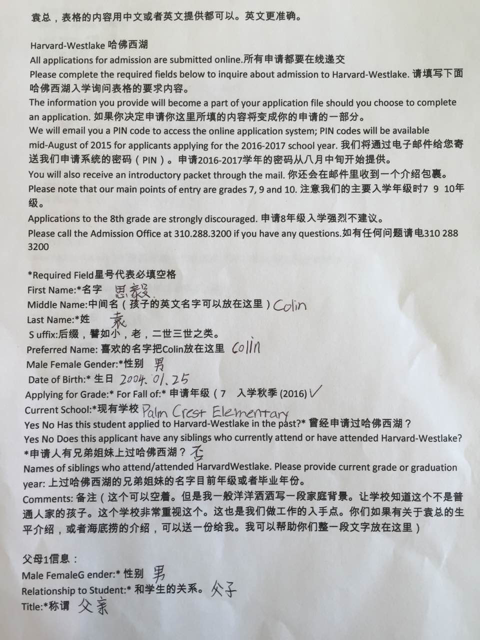 袁总，表格的内容用中文或者英文提供都可以。英文更准确。
Harvard-Westlake 哈佛西湖
All applications for admission are submitted online.所有申请都要在线递交
Please complete the required fields below to inquire about admission to Harvard-Westlake. 请填写下面
哈佛西湖入学询问表格的要求内容。
The information you provide will become a part of your application file should you choose to complete
an application. 如果你决定申请你这里所填的内容将变成你的申请的一部分。
We will email you a PIN code to access the online application system; PIN codes will be available
mid-August of 2015 for applicants applying for the 2016-2017 school year. 我们将通过电子邮件给您寄
送我们申请系统的密码（PIN）。申请2016-2017学年的密码从八月中旬开始提供。
You will also receive an introductory packet through the mail. 你还会在邮件里收到一个介绍包裹。
Please note that our main points of entry are grades 7, 9 and 10. 注意我们的主要入学年级时7 9 10年
级。
Applications to the 8th grade are strongly discouraged. 申请8年级入学强烈不建议。
Please call the Admission Office at 310.288.3200 if you have any questions.如有任何问题请电310 288
3200
*Required Field星号代表必填空格
First Name:*名字 思毅
Middle Name:中间名（孩子的英文名字可以放在这里）Colin
Last Name:*姓 袁
S uffix:后缀，譬如小，老，二世三世之类。
Preferred Name: 喜欢的名字把Colin放在这里 colin
Male Female Gender:*性别 男
Date of Birth:* 生日 2004. 01. 25
Applying for Grade:* For Fall of:* 申请年级（7 入学秋季 (2016) ✓
Current School:*现有学校 Palm Crest Elementary
Yes No Has this student applied to Harvard-Westlake in the past?* 曾经申请过哈佛西湖？
Yes No Does this applicant have any siblings who currently attend or have attended Harvard-Westlake?
*申请人有兄弟姐妹上过哈佛西湖？ 否
Names of siblings who attend/attended HarvardWestlake. Please provide current grade or graduation
year: 上过哈佛西湖的兄弟姐妹的名字目前年级或者毕业年份。
Comments: 备注（这个可以空着。但是我一般洋洋洒洒写一段家庭背景。让学校知道这个不是普
通人家的孩子。这个学校非常重视这个。这也是我们做工作的入手点。你们如果有关于袁总的生
平介绍，或者海底捞的介绍，可以送一份给我。我可以帮助你们整一段文字放在这里）
父母1信息：
Male FemaleG ender:* 性别 男
Relationship to Student:* 和学生的关系。 父子
Title:*称谓 父亲